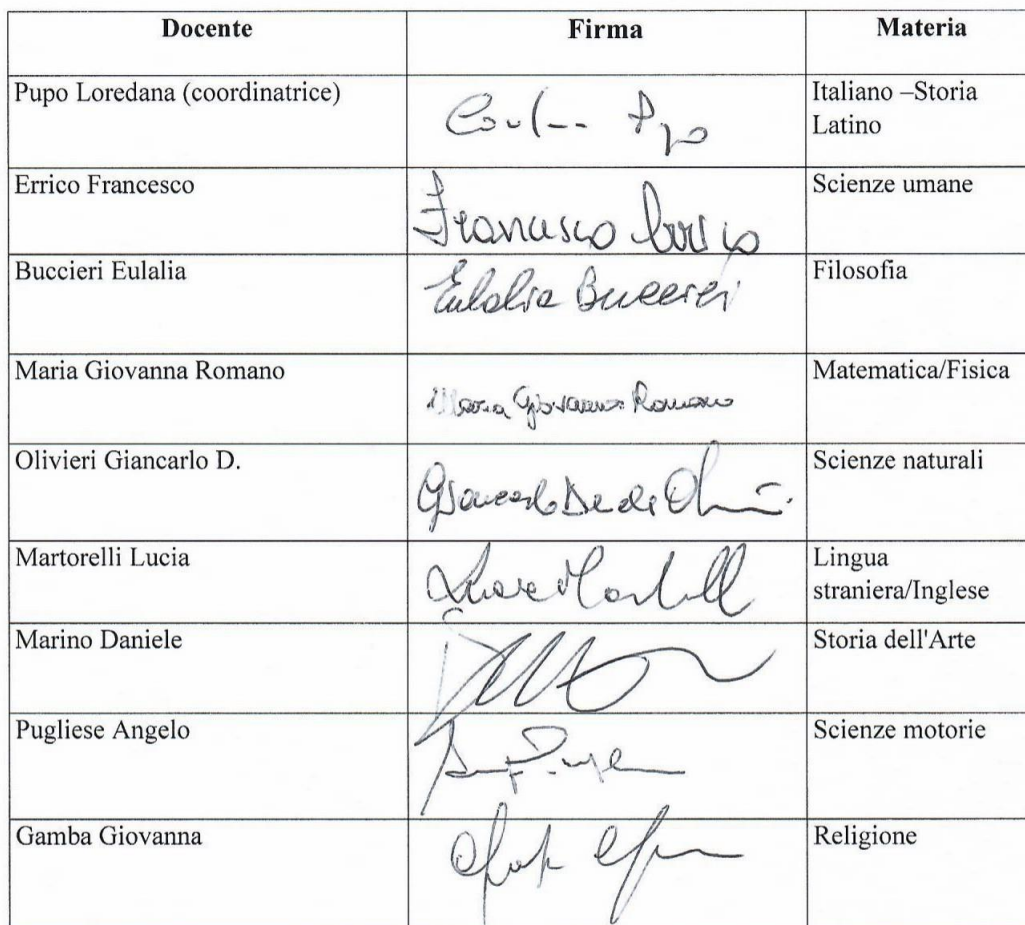 Docente Firma Materia
Pupo Loredana (coordinatrice) Italiano –Storia
Latino
Errico Francesco Francesco Errico Scienze umane
Buccieri Eulalia Eulalia Buccieri Filosofia
Maria Giovanna Romano Maria Giovanna Romano Matematica/Fisica
Olivieri Giancarlo D. Scienze naturali
Martorelli Lucia Lingua
straniera/Inglese
Marino Daniele Storia dell'Arte
Pugliese Angelo Scienze motorie
Gamba Giovanna Religione